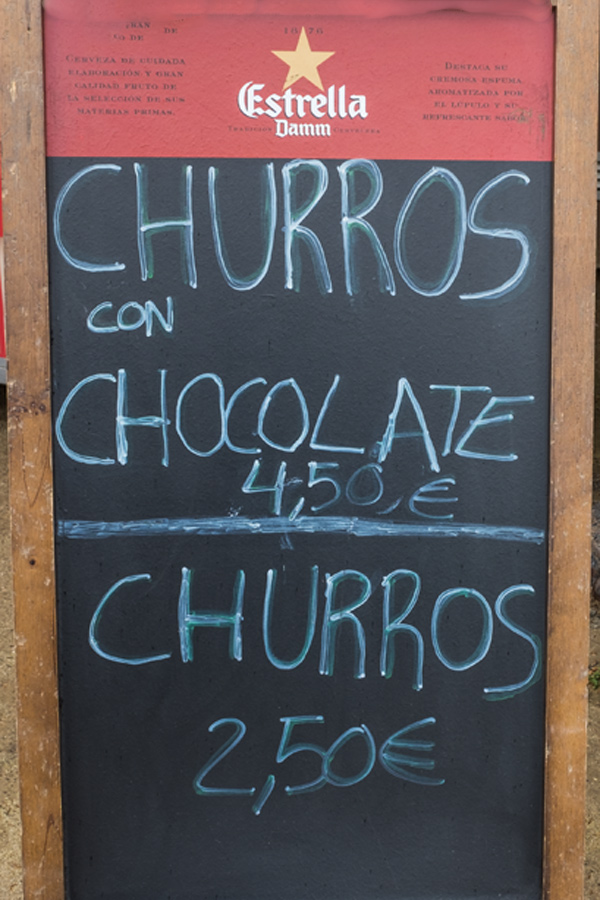 1876
CERVEZA DE CUIDADA
ELABORACIÓN Y GRAN
CALIDAD FRUTO DE
LA SELECCIÓN DE SUS
MATERIAS PRIMAS.
Estrella
Damm
DESTACA SU
CREMOSA ESPUMA,
AROMATIZADA POR
EL LÚPULO Y SU
REFRESCANTE SABOR
CHURROS
CON
CHOCOLATE
4,50 €
CHURROS
2,50€